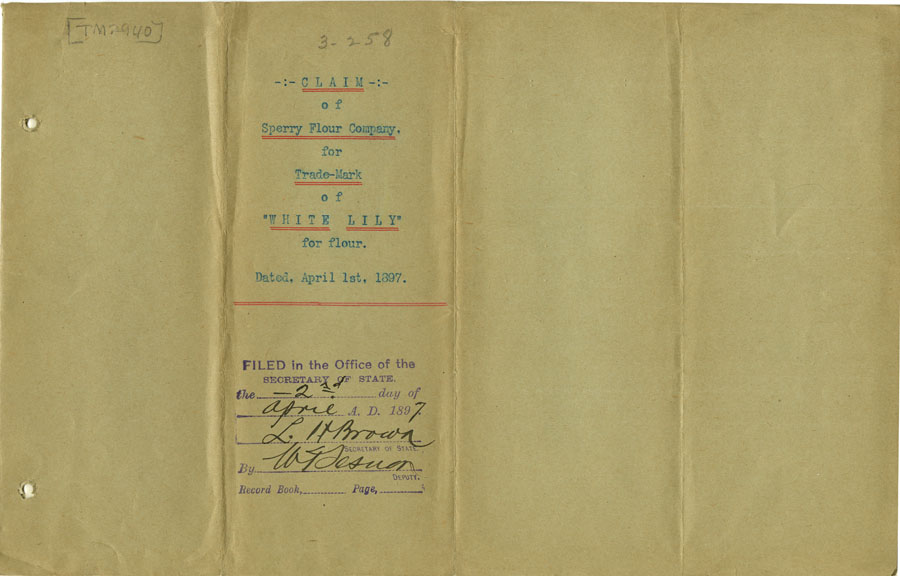 [TM2940]
3-258
-:- CLAIM -:-
of
Sperry Flour Company,
for
Trade-Mark
of
"WHITE LILY"
for flour.
Dated, April 1st, 1897.
FILED in the Office of the
SECRETARY OF STATE,
the 2nd day of
April A. D. 1897
L. H Brown
SECRETARY OF STATE.
By W T Sesnon
DEPUTY.
Record Book, Page,